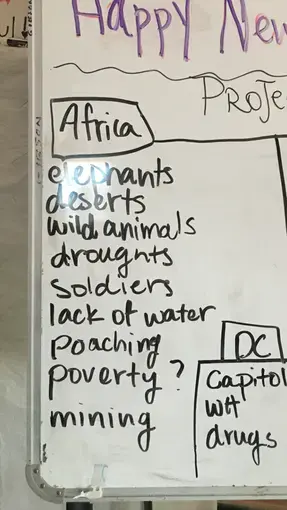 Happy New
PROJE
Africa
elephants
deserts
wild animals
droughts
soldiers
lack of water
poaching
poverty ?
mining
DC
Capitol
WH
drugs